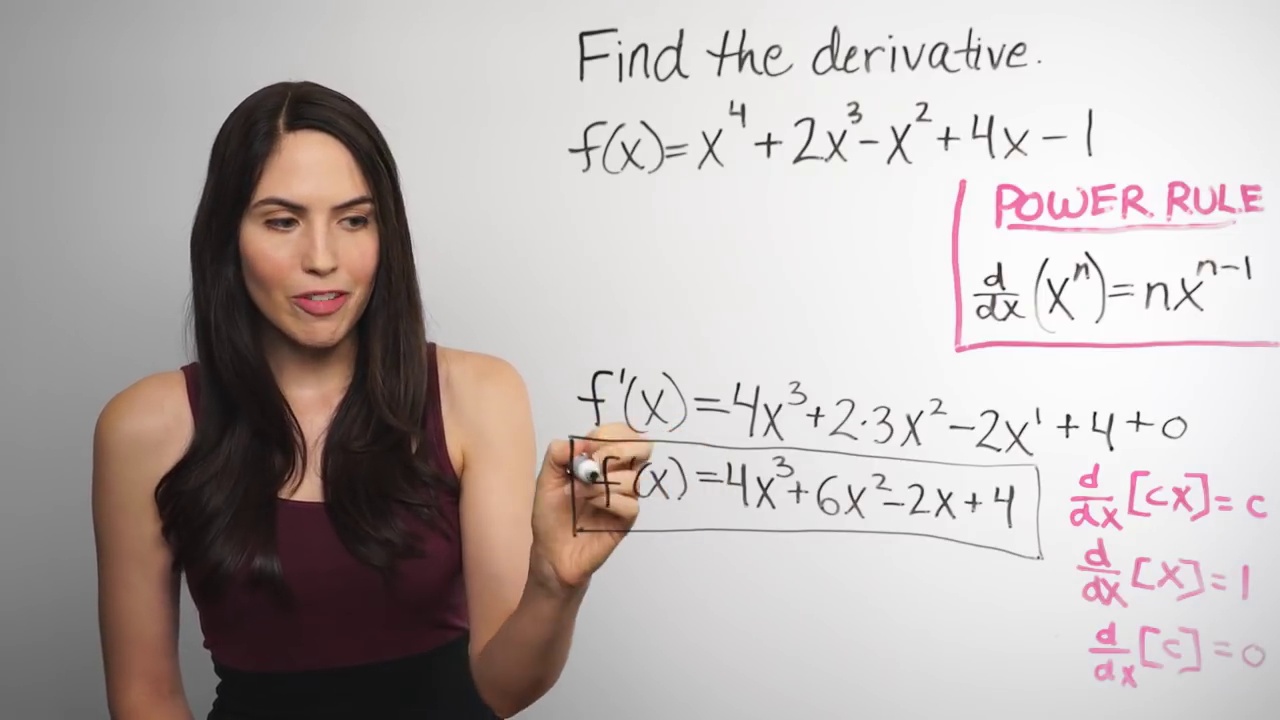 Find the derivative.
f(x)=x⁴+2x³-x²+4x-1
POWER RULE
d/dx (xⁿ)=nxⁿ⁻¹
f'(x)=4x³+2·3x²-2x¹+4+0
f'(x)=4x³+6x²-2x+4
d/dx [cx]=c
d/dx [x]=1
d/dx [c]=0